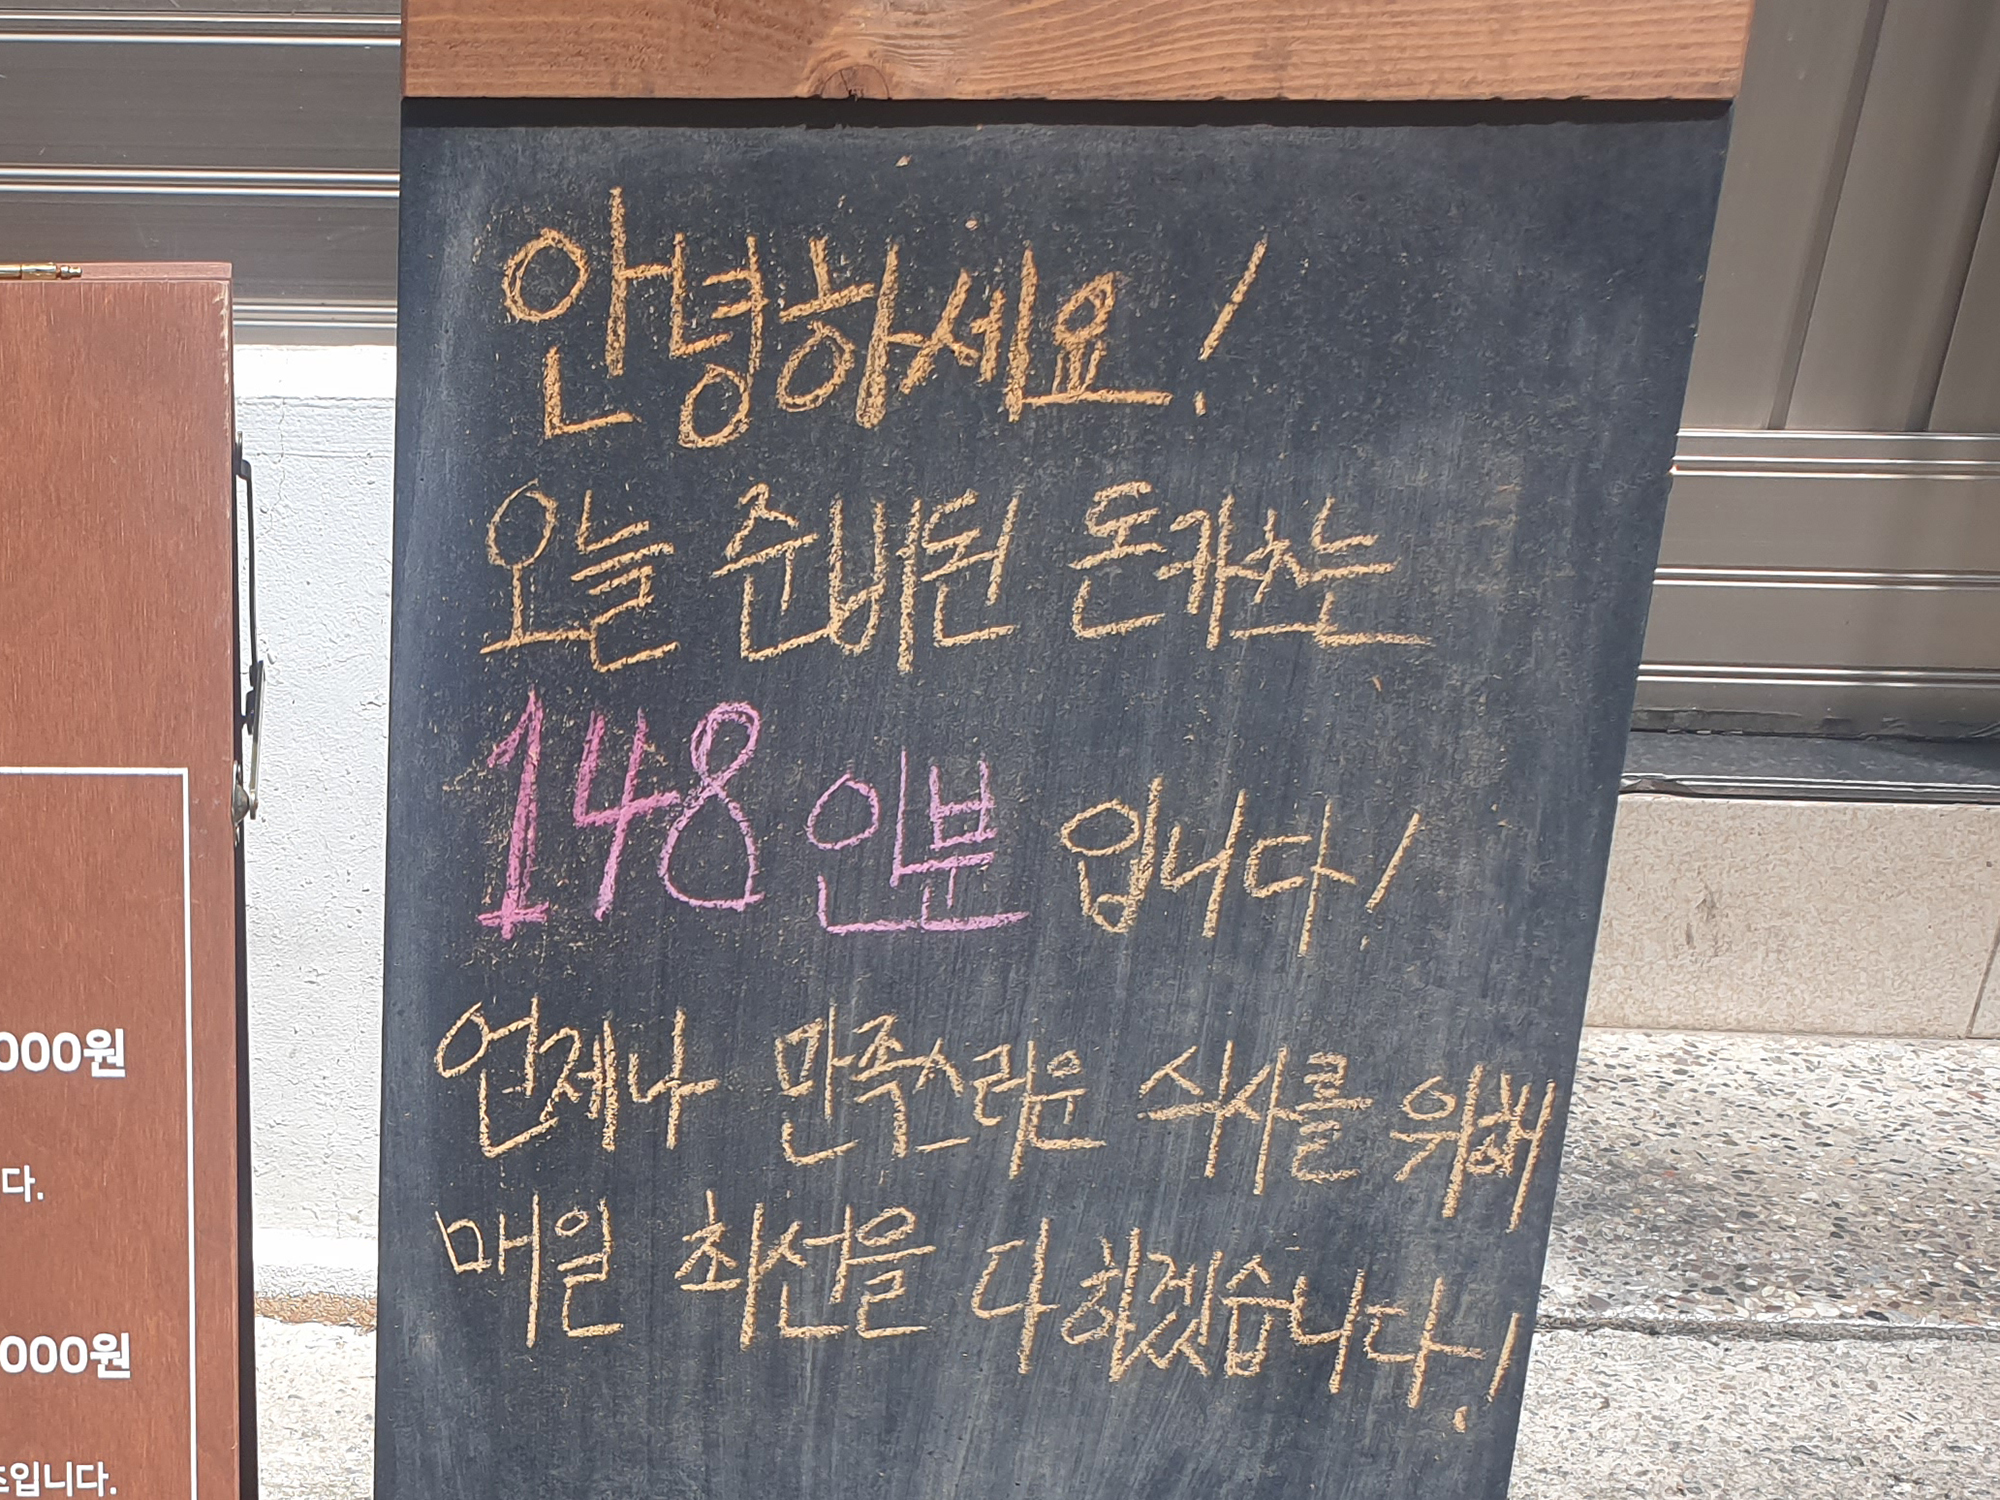 안녕하세요!
오늘 준비된 돈카츠는
148인분 입니다!
언제나 만족스러운 식사를 위해
매일 최선을 다하겠습니다!
000원
다.
000원
입니다.